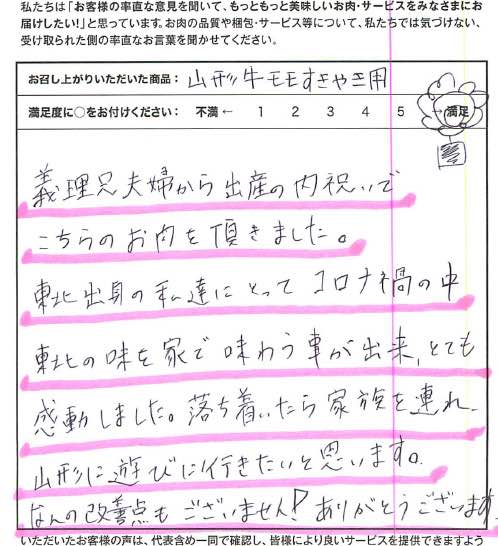 私たちは「お客様の率直な意見を聞いて、もっともっと美味しいお肉・サービスをみなさまにお
届けしたい！」と思っています。お肉の品質や梱包・サービス等について、私たちでは気づけない、
受け取られた側の率直なお言葉を聞かせてください。
お召し上がりいただいた商品： 山形牛モモすきやき用
満足度に○をお付けください： 不満 ← 1 2 3 4 5 → 満足
義理兄夫婦から出産の内祝いで
こちらのお肉を頂きました。
東北出身の私達にとってコロナ禍の中
東北の味を家で味わう事が出来、とても
感動しました。落ち着いたら家族を連れ、
山形に遊びに行きたいと思います。
なんの改善点もございません! ありがとうございます
いただいたお客様の声は、代表含め一同で確認し、皆様により良いサービスを提供できますよう